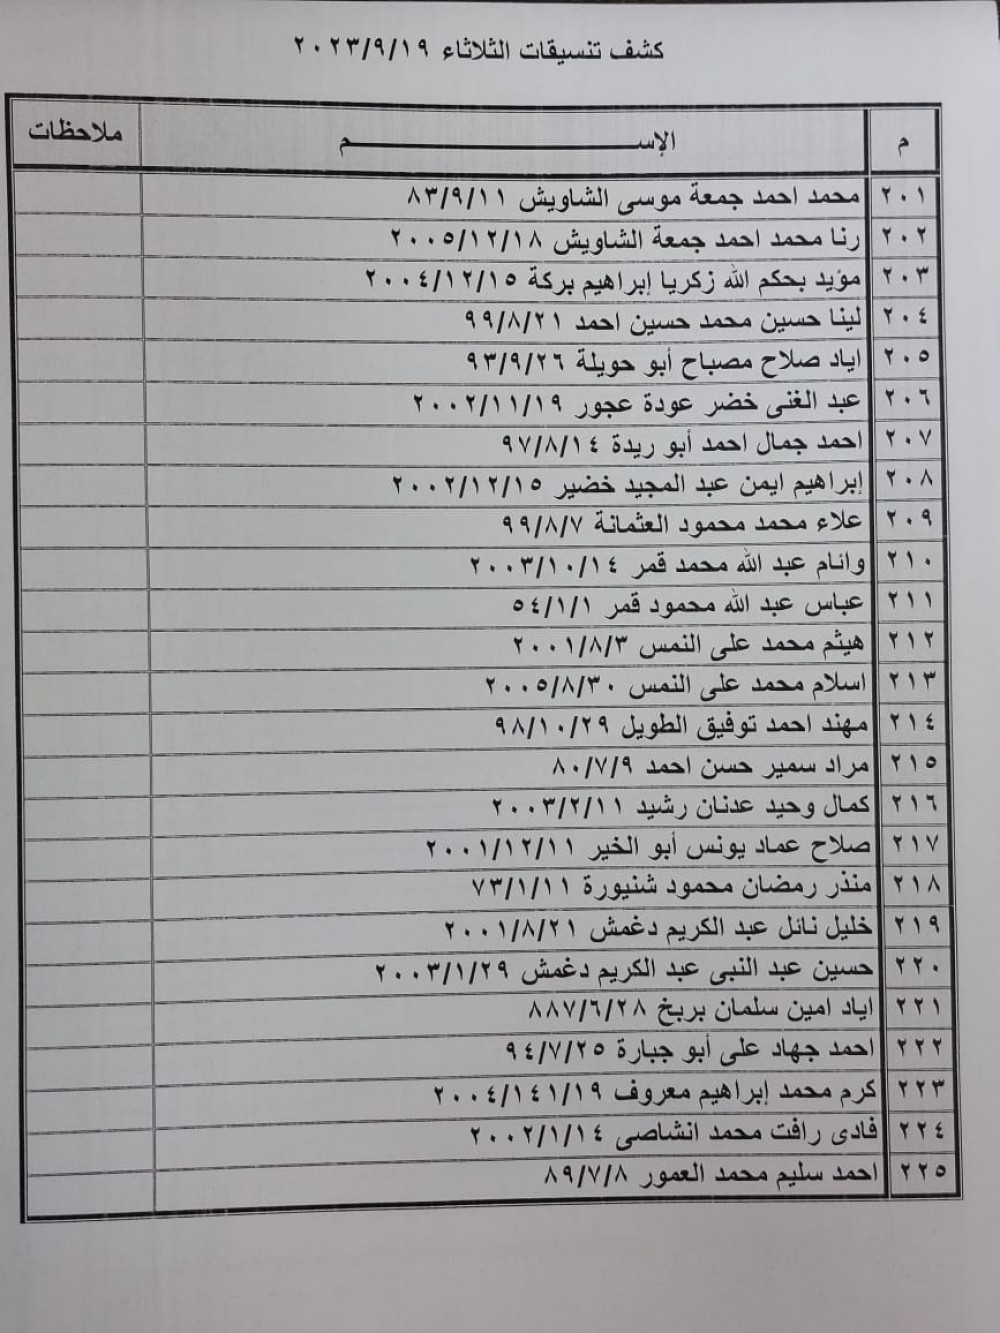 كشف تنسيقات الثلاثاء ٢٠٢٣/٩/١٩
م الإســـــــــــــــــــــم ملاحظات
٢٠١ محمد احمد جمعة موسى الشاويش ٨٣/٩/١١
٢٠٢ رنا محمد احمد جمعة الشاويش ٢٠٠٥/١٢/١٨
٢٠٣ مؤيد بحكم الله زكريا إبراهيم بركة ٢٠٠٤/١٢/١٥
٢٠٤ لينا حسين محمد حسين احمد ٩٩/٨/٢١
٢٠٥ اياد صلاح مصباح أبو حويلة ٩٣/٩/٢٦
٢٠٦ عبد الغنى خضر عودة عجور ٢٠٠٢/١١/١٩
٢٠٧ احمد جمال احمد أبو ريدة ٩٧/٨/١٤
٢٠٨ إبراهيم ايمن عبد المجيد خضير ٢٠٠٢/١٢/١٥
٢٠٩ علاء محمد محمود العثمانة ٩٩/٨/٧
٢١٠ وانام عبد الله محمد قمر ٢٠٠٣/١٠/١٤
٢١١ عباس عبد الله محمود قمر ٥٤/١/١
٢١٢ هيثم محمد على النمس ٢٠٠١/٨/٣
٢١٣ اسلام محمد على النمس ٢٠٠٥/٨/٣٠
٢١٤ مهند احمد توفيق الطويل ٩٨/١٠/٢٩
٢١٥ مراد سمير حسن احمد ٨٠/٧/٩
٢١٦ كمال وحيد عدنان رشيد ٢٠٠٣/٢/١١
٢١٧ صلاح عماد يونس أبو الخير ٢٠٠١/١٢/١١
٢١٨ منذر رمضان محمود شنيورة ٧٣/١/١١
٢١٩ خليل نائل عبد الكريم دغمش ٢٠٠١/٨/٢١
٢٢٠ حسين عبد النبى عبد الكريم دغمش ٢٠٠٣/١/٢٩
٢٢١ اياد امين سلمان بربخ ٨٨٧/٦/٢٨
٢٢٢ احمد جهاد على أبو جبارة ٩٤/٧/٢٥
٢٢٣ كرم محمد إبراهيم معروف ٢٠٠٤/١٤١/١٩
٢٢٤ فادى رافت محمد انشاصى ٢٠٠٢/١/١٤
٢٢٥ احمد سليم محمد العمور ٨٩/٧/٨